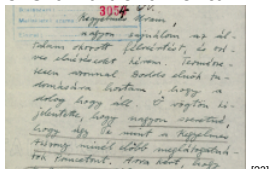 3054
Kegyelmes Uram,
nagyon sajnálom az ál-
talam okozott félreértést, és szí-
ves elnézésedet kérem. Természe-
tesen azonnal Boddos elnök tu-
domására hoztam, hogy a
dolog hogy áll. Ő rögtön ki-
jelentette, hogy nagyon szeretné,
hogy úgy Te mint a Kegyelmes
Asszony minél előbb meglátogatná-
tok Pannoniát. Arra kért, hogy
[22]